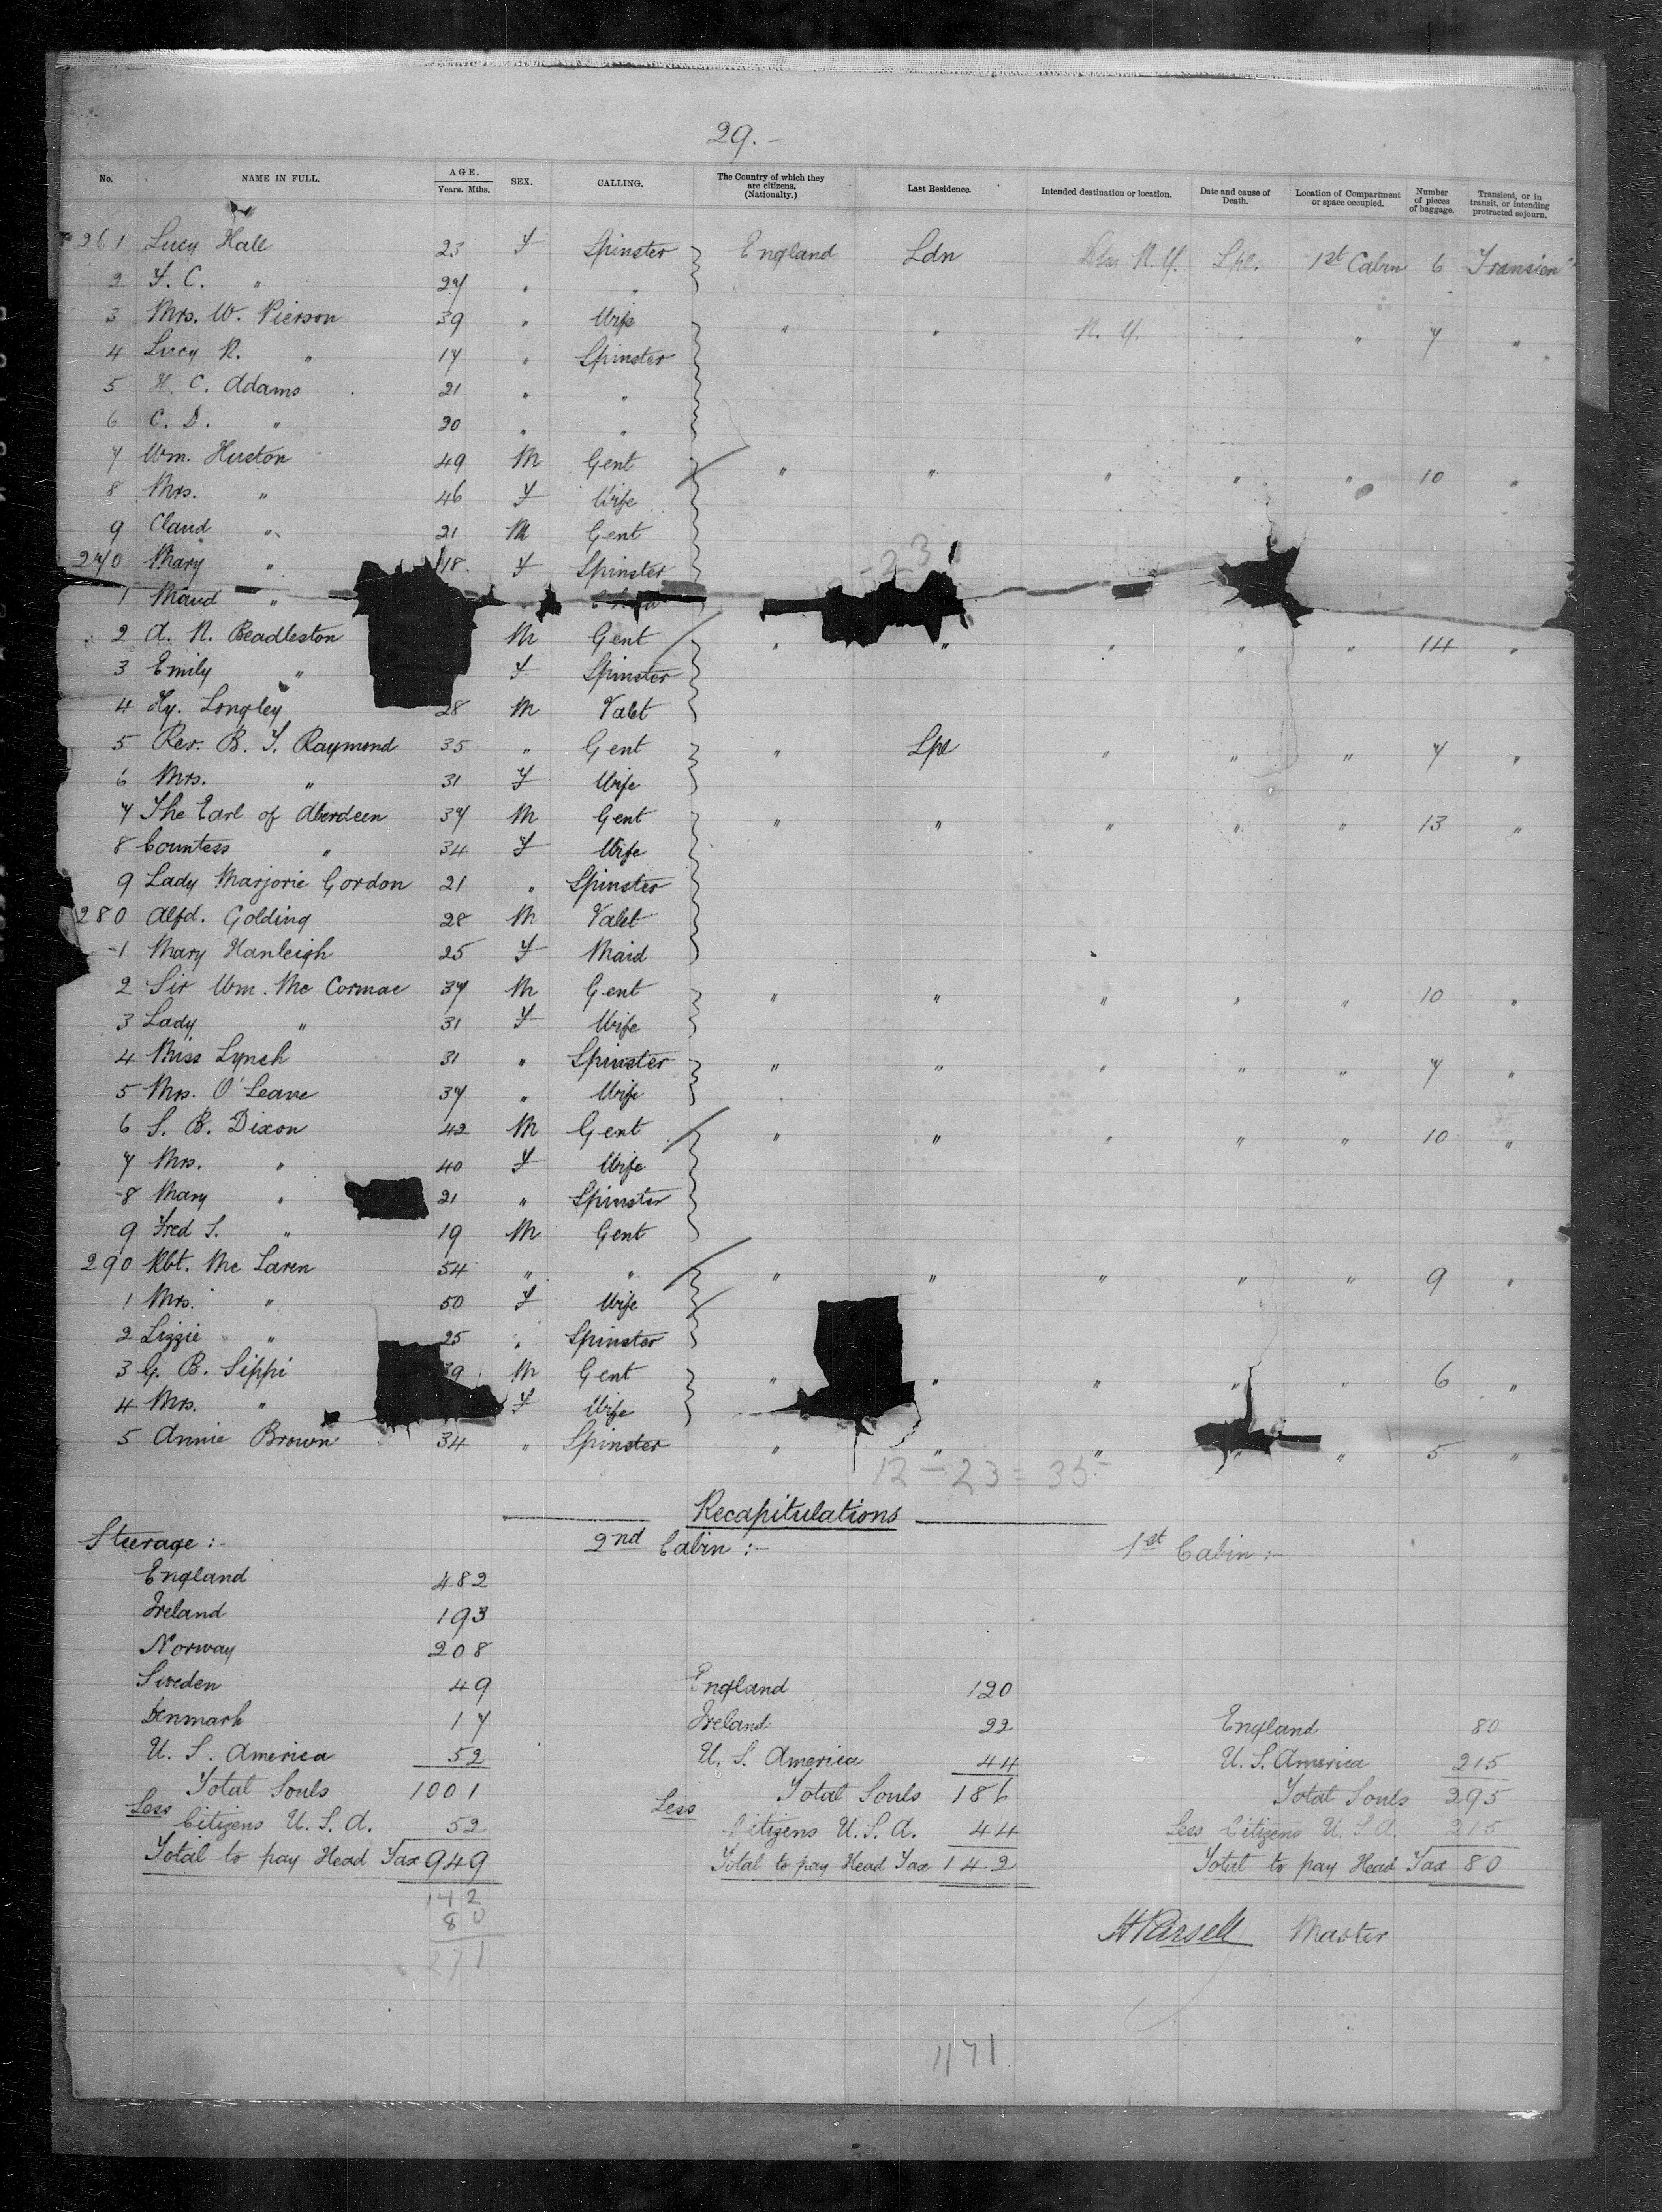 29.-
No. NAME IN FULL. AGE. Years. Mths. SEX. CALLING. The Country of which they are citizens. (Nationality.) Last Residence. Intended destination or location. Date and cause of Death. Location of Compartment or space occupied. Number of pieces of baggage. Transient, or in transit, or intending protracted sojourn.
261 Lucy Hall 23 F Spinster England Ldn N. Y. Lpl. 1st Cabin 6 Transien
2 F. C. " 27 " "
3 Mrs. W. Pierson 39 " Wife " " N. Y. " " 7 "
4 Lucy R. " 17 " Spinster
5 H. C. Adams 21 " "
6 C. D. " 20 " "
7 Wm. Huston 49 M Gent " " " " " 10 "
8 Mrs. " 46 F Wife
9 Claud " 21 M Gent
270 Mary " 18 F Spinster
1 Maud "
2 A. N. Beadleston M Gent " " " " " 14 "
3 Emily " F Spinster
4 Hy. Longley 28 M Valet
5 Rev. B. F. Raymond 35 " Gent " Lpl " " " 7 "
6 Mrs. " 31 F Wife
7 The Earl of Aberdeen 37 M Gent " " " " " 13 "
8 Countess " 34 F Wife
9 Lady Marjorie Gordon 21 " Spinster
280 Alfd. Golding 28 M Valet
1 Mary Hanleigh 25 F Maid
2 Sir Wm. Mc Cormac 37 M Gent " " " " " 10 "
3 Lady " 31 F Wife
4 Miss Lynch 31 " Spinster " " " " " 7 "
5 Mrs. O'Leave 37 " Wife
6 S. B. Dixon 42 M Gent " " " " " 10 "
7 Mrs. " 40 F Wife
8 Mary " 21 " Spinster
9 Fred S. " 19 M Gent
290 Rbt. Mc Laren 54 " " " " " " " 9 "
1 Mrs. " 50 F Wife
2 Lizzie " 25 " Spinster
3 G. B. Sippi 39 M Gent " " " " " 6 "
4 Mrs. " F Wife
5 Annie Brown 34 " Spinster " " " " " 5 "
12 - 23 = 35-
Recapitulations
Steerage :- 2nd Cabin :- 1st Cabin :-
England 482
Ireland 193
Norway 208
Sweden 49 England 120
Denmark 17 Ireland 22 England 80
U. S. America 52 U. S. America 44 U. S. America 215
Total Souls 1001 Total Souls 186 Total Souls 295
Less Citizens U. S. A. 52 Less Citizens U. S. A. 44 Less Citizens U. S. A. 215
Total to pay Head Tax 949 Total to pay Head Tax 142 Total to pay Head Tax 80
142
80
H Parsell Master
1171